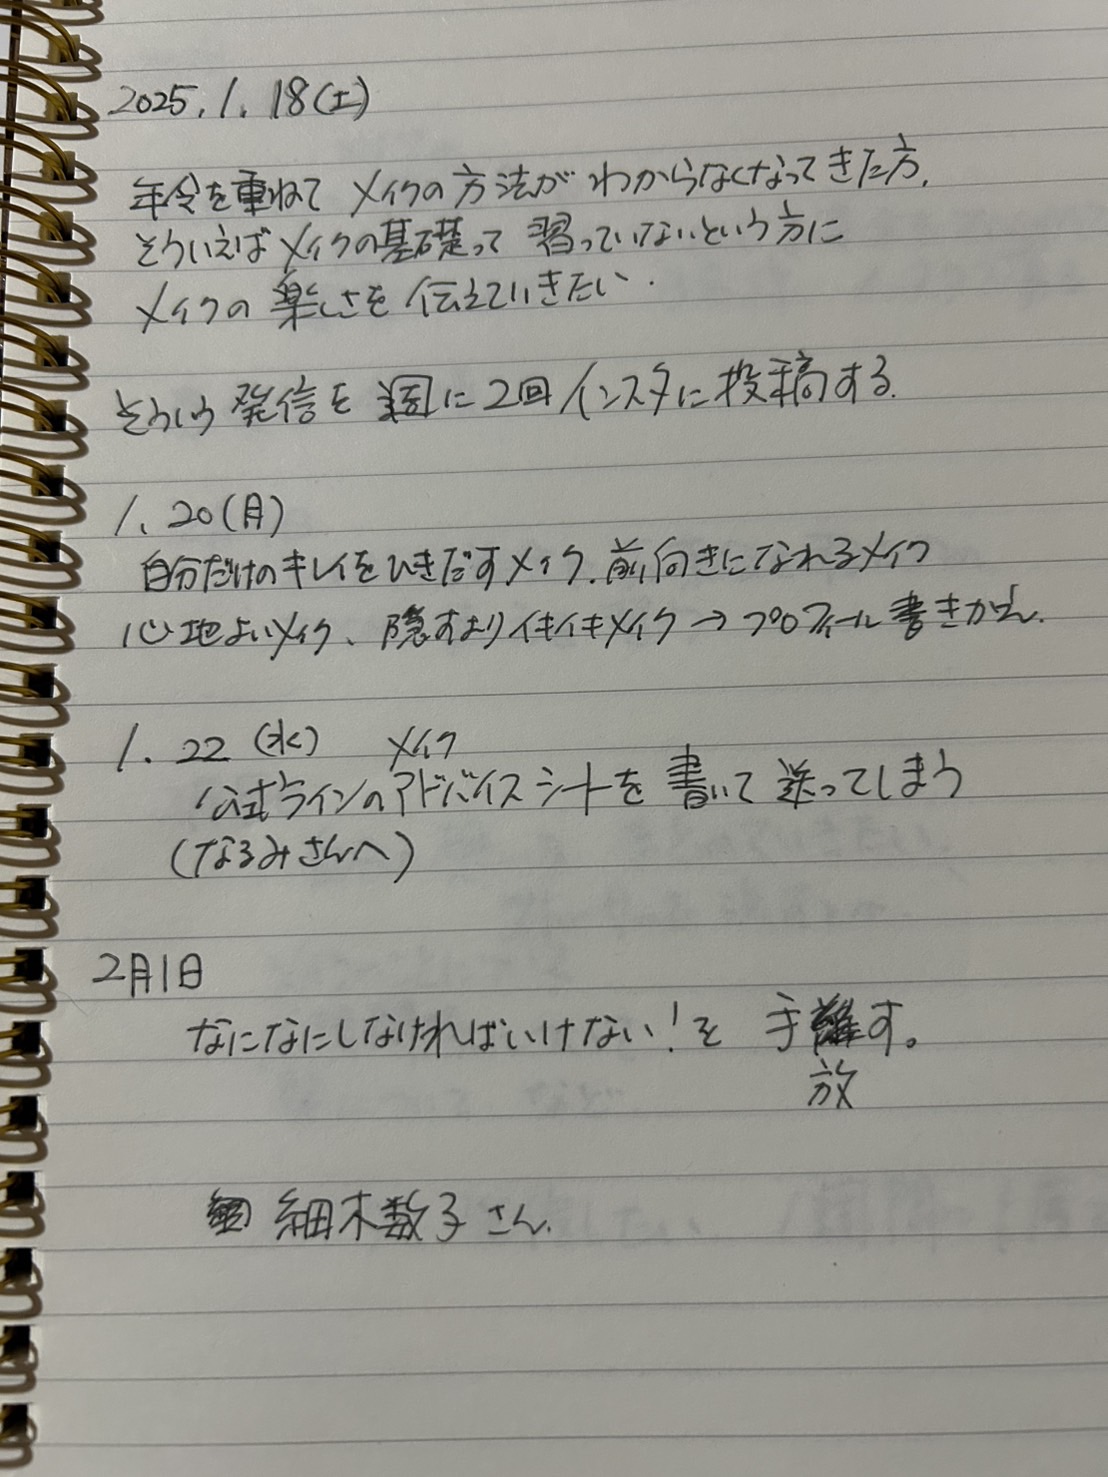 2025.1.18(土)
年令を重ねて メイクの方法が わからなくなってきた方、
そういえばメイクの基礎って 習っていないという方に
メイクの 楽しさを 伝えていきたい.
そういう 発信を 週に2回 インスタに投稿する.
1.20(月)
自分だけのキレイをひきだすメイク、前向きになれるメイク
心地よいメイク、隠すよりイキイキメイク→プロフィール書きかえ.
1.22(水) メイク
公式ラインのアドバイスシートを 書いて 送ってしまう
(なるみさんへ)
2月1日
なになにしなければいけない!を 手す。
放
細木数子さん.